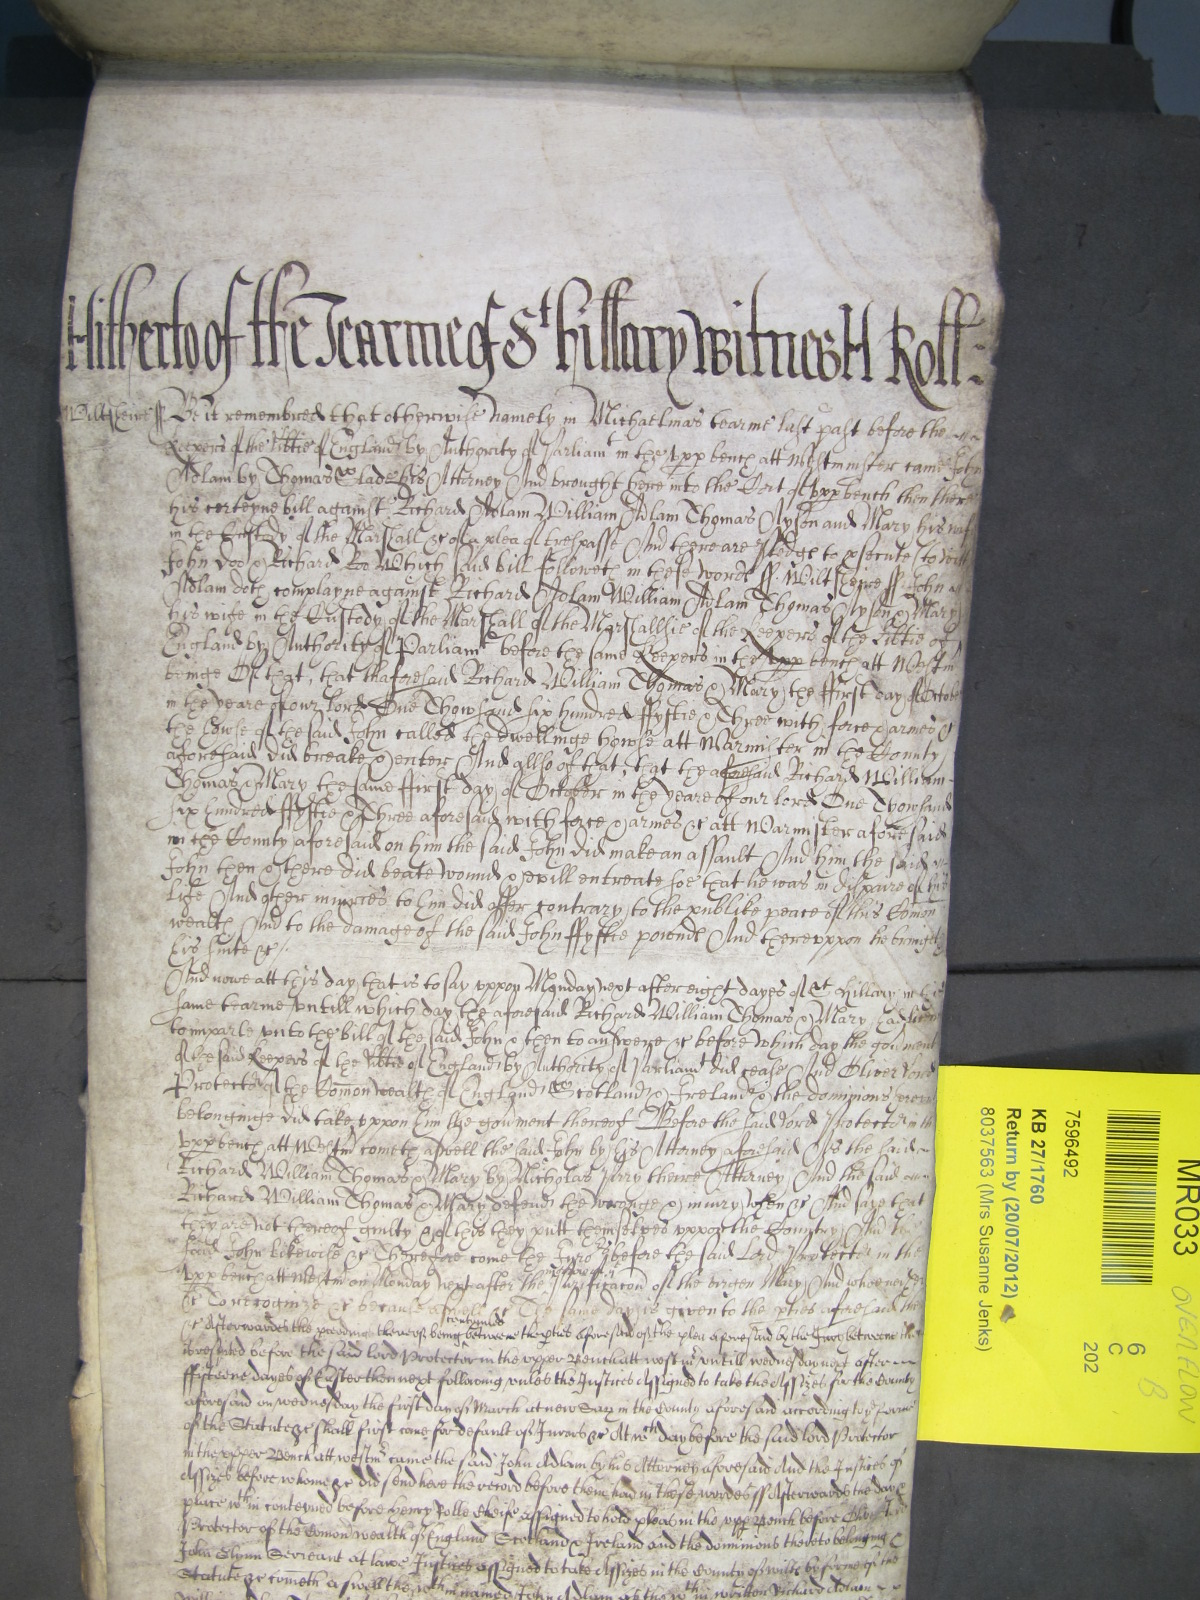 Hitherto of the Tearme of St hillary witness Roll
Wiltsheire ss Be it remembred that otherwise namely in Michaelmas tearme last past before the
Keepers of the libtie of England by Authority of Parliamt in the upp bench att Westminster came John
Adlam by Thomas Slade his Attorney And brought here into the Cort of upp bench then there
his certeyne bill against Richard Adlam William Adlam Thomas and Mary his
in the Custody of the Marshall &c of a plea of trespasse And there are pledge to psecute to
John Doo & Richard Roo Which said bill followeth in these words ss Wiltsheire ss John
Adlam doth complayne against Richard Adlam William Adlam Thomas & Mary
his wife in the Custody of the Marshall of the Marshallsie of the Keepers of the libtie of
England by Authority of Parliamt before the same Keepers in the upp bench att Westm
beinge Of that, that thaforesaid Richard William Thomas & Mary the ffirst day of
in the yeare of our lord One Thowsand six hundred ffyftie & Three with force & armes &c
the howse of the said John called the dwellinge howse att Warmister in the County
aforesaid did breake & enter And allso of that, that the aforesaid Richard William
Thomas & Mary the same ffirst day of October in the yeare of our lord One Thowsand
six hundred ffyftie & Three aforesaid with force & armes &c att Warmister aforesaid
in the County aforesaid on him the said John did make an assault And him the said
John then & there did beate wound & evill entreate soe that he was in dispaire of his
life And other iniuries to him did offer contrary to the publike peace of this Comon
wealth And to the damage of the said John ffyftie pounds And thereuppon he bringeth
his suite &c
And nowe att this day that is to say uppon Monday next after eight dayes of St hillary in
same tearme untill which day the aforesaid Richard William Thomas & Mary had
to imparle unto the bill of the said John & then to answere &c before which day the goument
of the said Keepers of the libtie of England by Authority of Parliamt did cease And Oliver Lord
Protector of the Comon wealth of England Scotland & Ireland & the dominions
belonginge did take uppon him the goument thereof Before the said lord Protector in the
upp bench att Westm cometh aswell the said John by his Attorney aforesaid As the said
Richard William Thomas & Mary by Nicholas theire Attorney And the said
Richard William Thomas & Mary defend the wronge & iniury when &c And saye that
they are not thereof guilty & of this they putt themselves uppon the Country And the
said John likewise &c Therefore come the Jury before the said Lord Protector in the
upp bench att Westm on Monday next after the Purificacon of the virgen Mary And who neither
&c To recognize &c because aswell &c The same day is given to the pties aforesaid there
&c Afterwards the proceding thereof being continued betweene the pties aforesaid of the plea aforesaid by the Jury betweene them
before the said lord Protector in the upper Bench att westmr untill wednesday next after
ffifteene dayes of Easter then next following unles the Justices Assigned to take the Assizes for the County
aforesaid on wednesday the first day of March at new Sarum in the County aforesaid according to ye forme
of the Statute &c shall first come for default of Jurors &c At wch day before the said lord Protector
in the upper Bench att westmr came the said John Adlam by his Attorney aforesaid And the Justices of
Assizes before whome &c did send here the record before them had in these wordes ss Afterwards the day &
place wthin conteyned before Henry Rolle Cheife assigned to hold pleas in the upp Bench before
Protector of the Comon wealth of England Scotland & Ireland and the dominions thereto belonging &
John Glynn Serieant at lawe Justices assigned to take Assizes in the County of wilts by forme of the
Statute &c cometh aswell the wthin named John Adlam as the wthin written Richard Adlam
MR033
OVERFLOW
B
7596492
KB 27/1760
Return by (20/07/2012)
8037563 (Mrs Susanne Jenks)
6
C
202